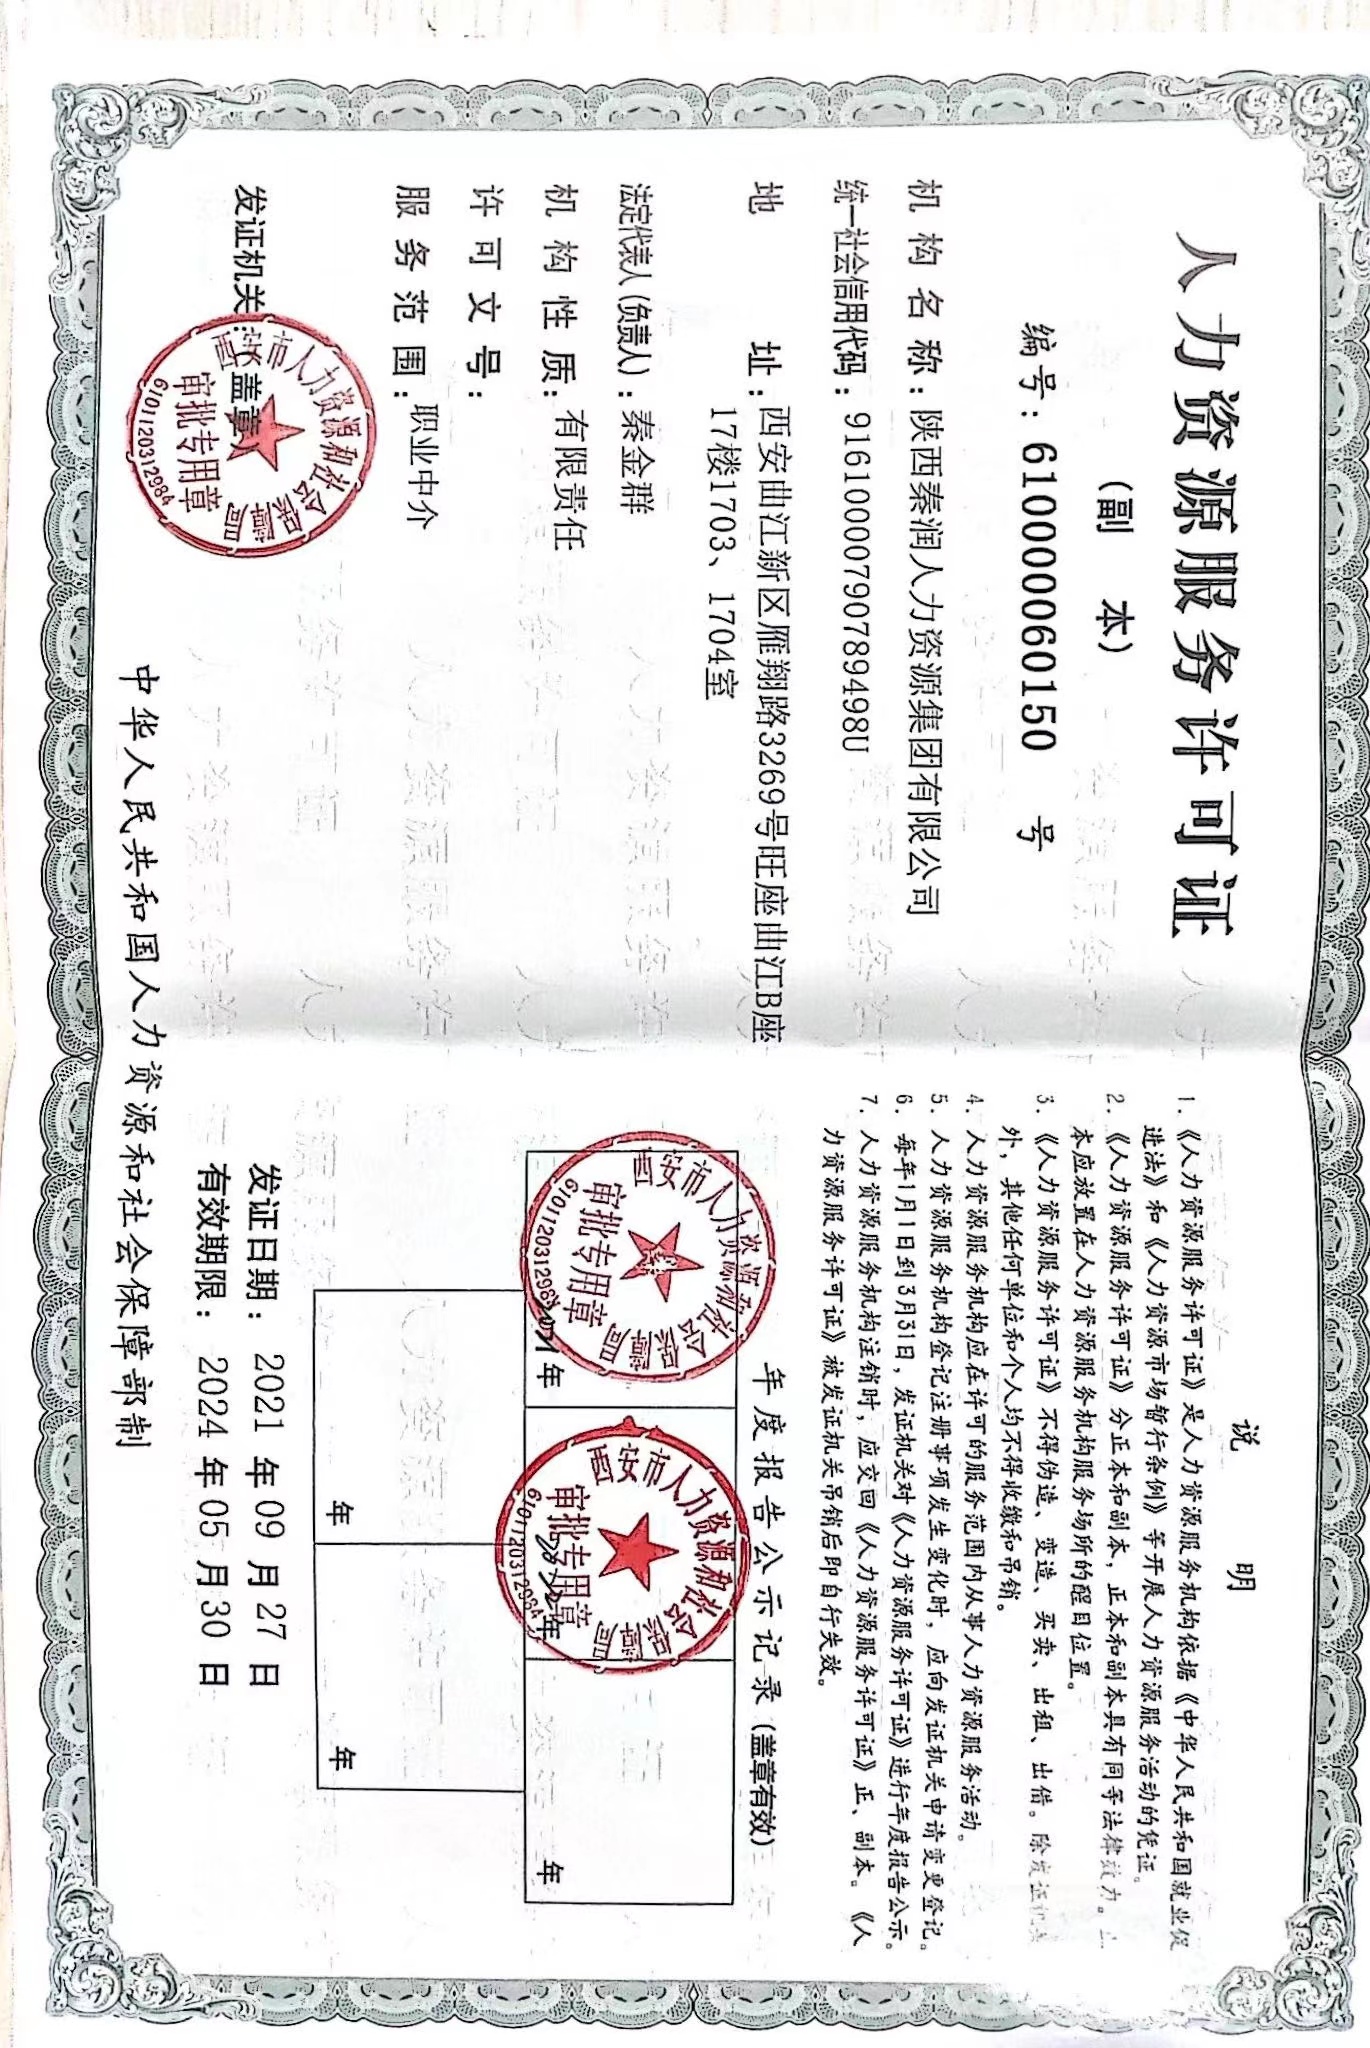 人力资源服务许可证
（副 本）
编号：610000060150 号
机构名称：陕西秦润人力资源集团有限公司
统一社会信用代码：91610000790789498U
地 址：西安曲江新区雁翔路3269号旺座曲江B座
17楼1703、1704室
法定代表人（负责人）：秦金群
机构性质：有限责任
许可文号：
服务范围：职业中介
发证机关：（盖章）
西安市人力资源和社会保障局
审批专用章
6101120312984
说 明
1. 《人力资源服务许可证》是人力资源服务机构依据《中华人民共和国就业促
进法》和《人力资源市场暂行条例》等开展人力资源服务活动的凭证。
2. 《人力资源服务许可证》分正本和副本，正本和副本具有同等法律效力。正
本应放置在人力资源服务机构服务场所的醒目位置。
3. 《人力资源服务许可证》不得伪造、变造、买卖、出租、出借。除发证机关
外，其他任何单位和个人均不得收缴和吊销。
4. 人力资源服务机构应在许可的服务范围内从事人力资源服务活动。
5. 人力资源服务机构登记注册事项发生变化时，应向发证机关申请变更登记。
6. 每年1月1日到3月31日，发证机关对《人力资源服务许可证》进行年度报告公示。
7. 人力资源服务机构注销时，应交回《人力资源服务许可证》正、副本。《人
力资源服务许可证》被发证机关吊销后即自行失效。
年度报告公示记录（盖章有效）
西安市人力资源和社会保障局
审批专用章
6101120312984
年
西安市人力资源和社会保障局
审批专用章
6101120312984
年
年
年
年
发证日期：2021 年 09 月 27 日
有效期限：2024 年 05 月 30 日
中华人民共和国人力资源和社会保障部制